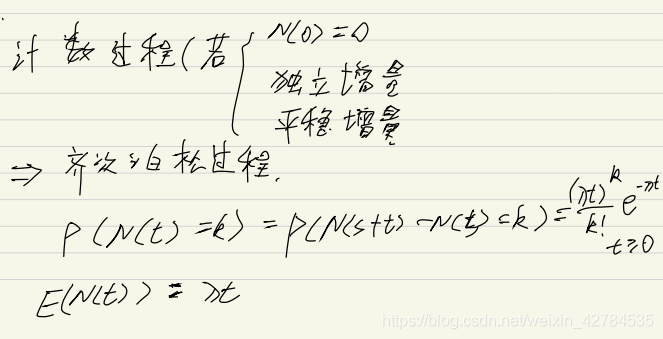 计数过程(若 { N(0)=0
独立增量
平稳增量
⇒ 齐次泊松过程.
P(N(t)=k)=P(N(s+t)-N(t)=k)=\frac{(λt)^k}{k!}e^{-λt}
t≥0
E(N(t))=λt
https://blog.csdn.net/weixin_42784535